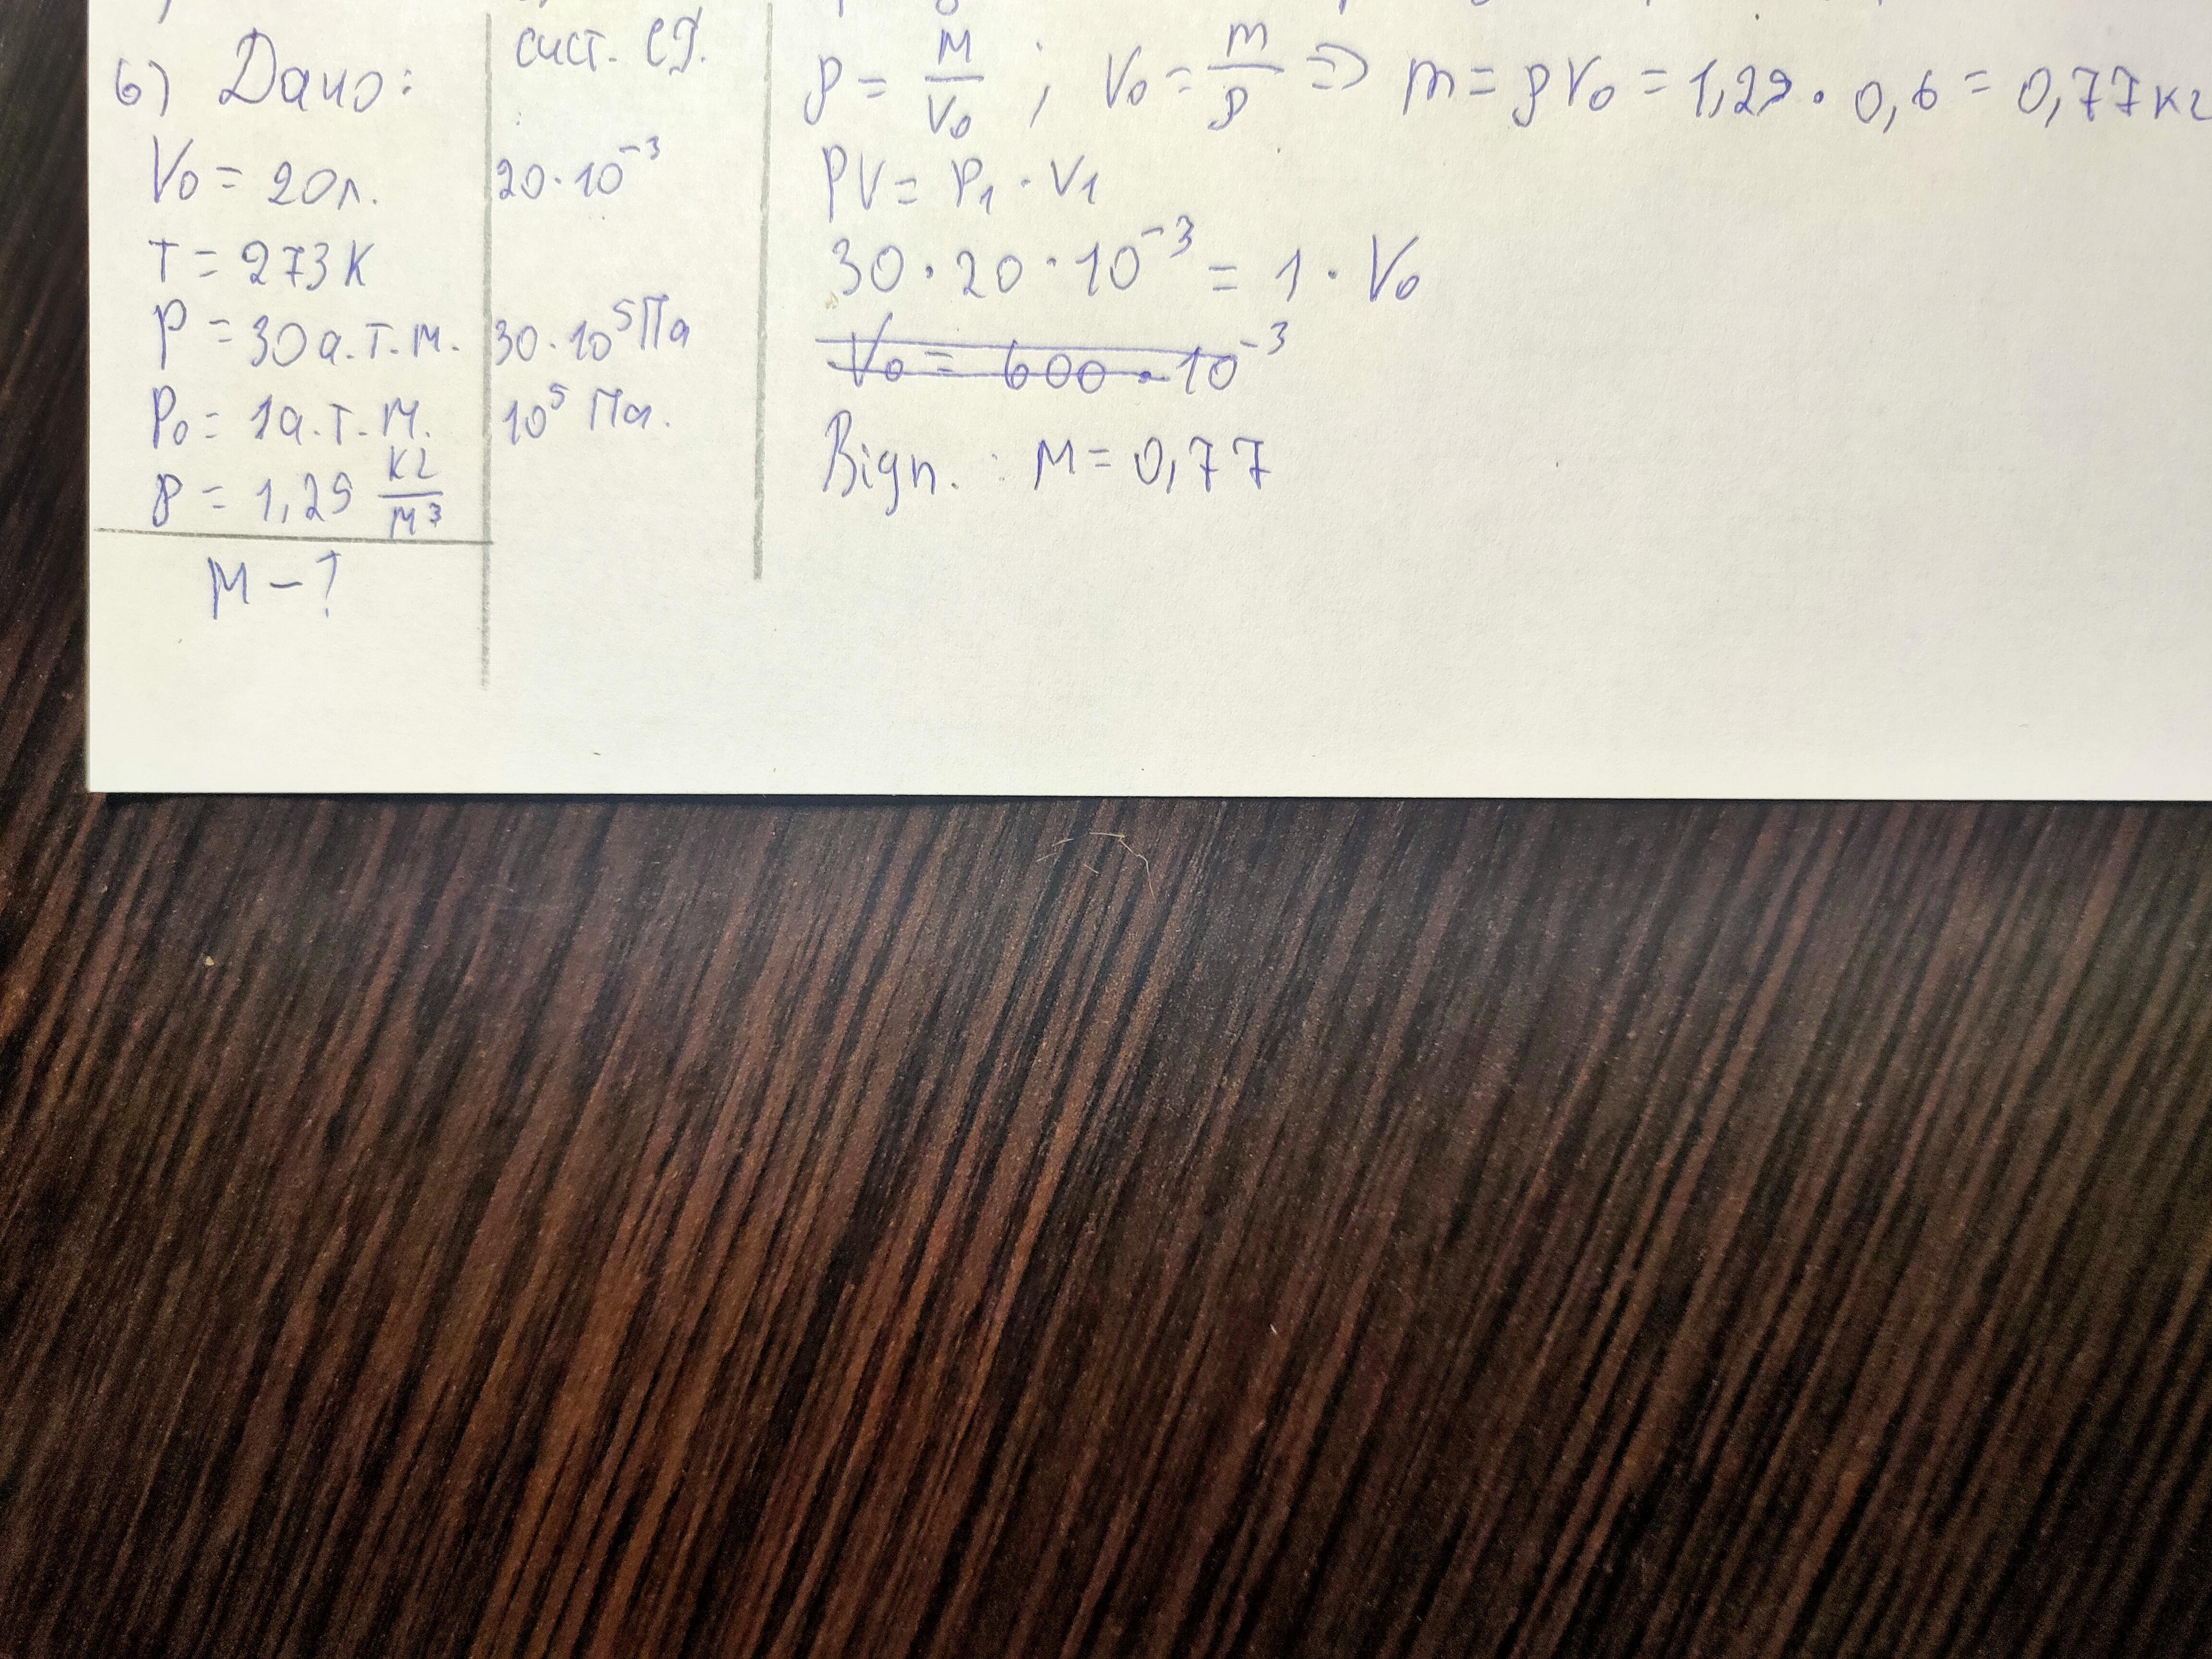 6) Дано:
V₀ = 20л.
T = 273К
P = 30а.т.м.
P₀ = 1а.т.м.
ρ = 1,29 кг/м³
М – ?
сист. СІ.
20·10⁻³
30·10⁵Па
10⁵ Па.
ρ = м/V₀ ; V₀ = m/ρ => m = ρV₀ = 1,29 · 0,6 = 0,77кг
PV = P₁ · V₁
30 · 20 · 10⁻³ = 1 · V₀
V₀ = 600 · 10⁻³
Відп. : м = 0,77